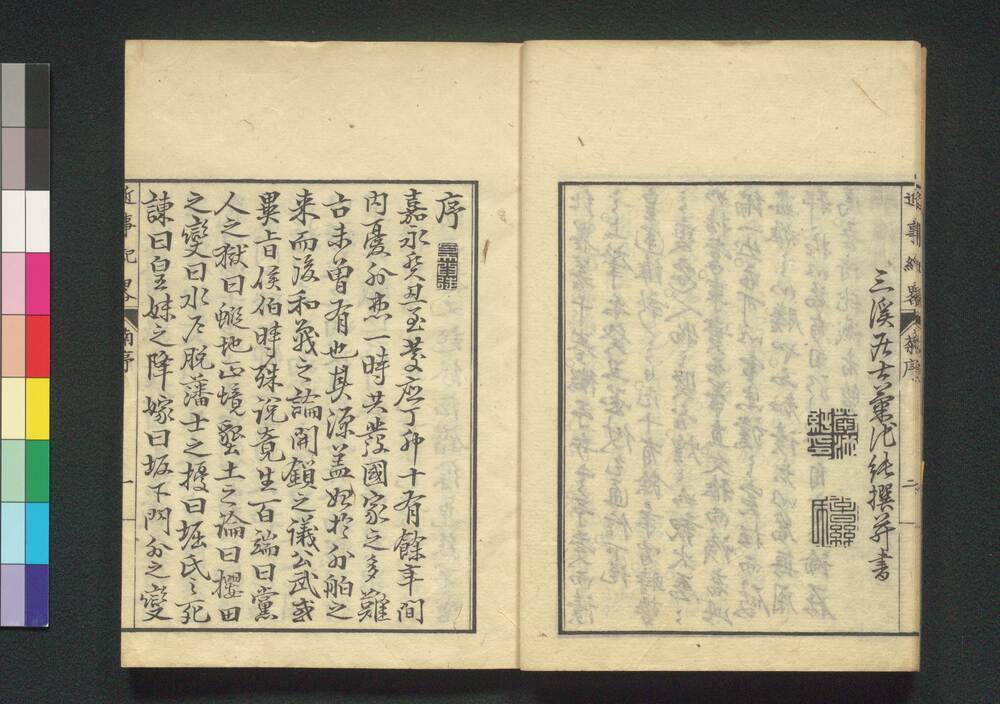 近事紀畧
序
二
三溪居士菊池純撰并書
序
嘉永癸丑至慶応丁卯十有餘年間
内憂外患一時共發國家之多難
古未曾有也其源蓋起於外舶之
来而後和戦之論開鎖之議公武或
異旨侯伯時殊説竟生百端曰黨
人之獄曰蝦地正境壑土之論曰櫻田
之變曰水府脱藩士之擾曰堀氏之死
諫曰皇妹之降嫁曰坂下門外之變
近事紀畧
序
一